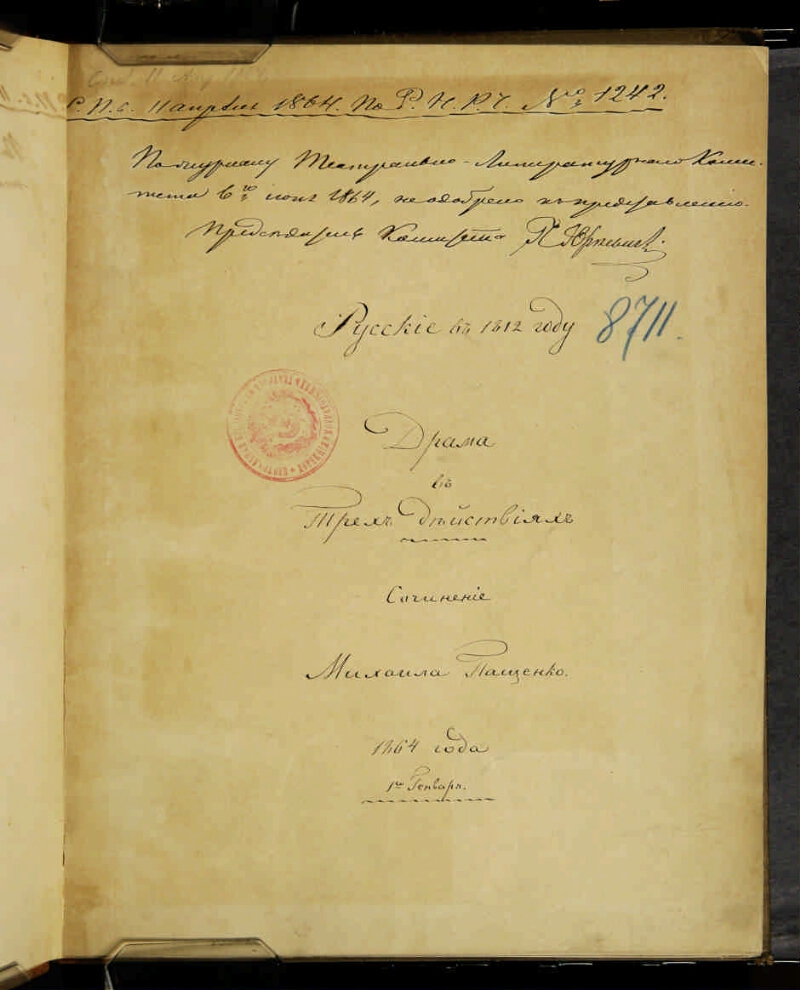 С.П.б. 11 апреля 1864. По Р. И. Р. Г. № 1242.
По журналу Театрально-Литературного Коми-
тета 6го июня 1864, не одобрено къ представленію.
Председатель Комитета П Юркевичъ.
Русскіе въ 1812 году
8711.
Драма
въ
Трехъ дѣйствіяхъ
Сочиненіе
Михаила Пащенко.
1864 года
1го Генваря.